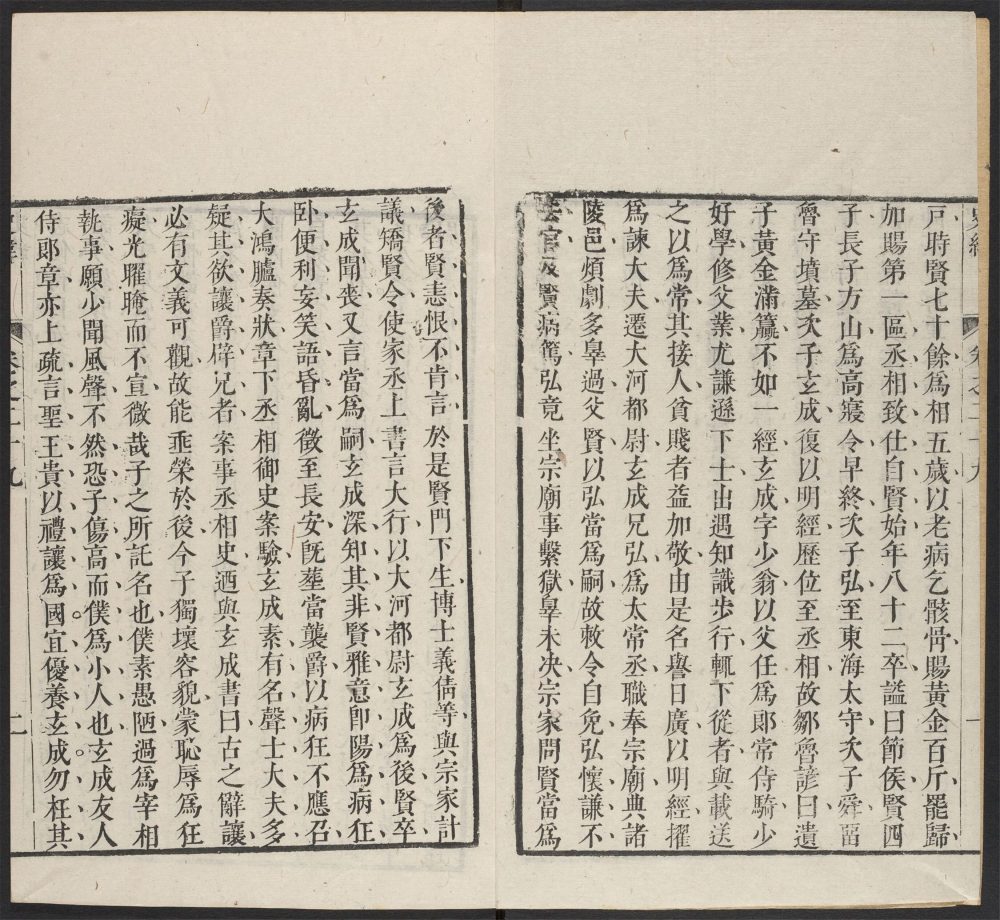 史緯 卷之二十九 一
戸時賢七十餘爲相五歲以老病乞骸骨賜黃金百斤罷歸
加賜第一區丞相致仕自賢始年八十二卒謚曰節侯賢四
子長子方山爲高寢令早終次子弘至東海太守次子舜畱
魯守墳墓次子玄成復以明經歷位至丞相故鄒魯諺曰遺
子黃金滿籯不如一經玄成字少翁以父任爲郎常侍騎少
好學修父業尤謙遜下士出遇知識步行輒下從者與載送
之以爲常其接人貧賤者益加敬由是名譽日廣以明經擢
爲諫大夫遷大河都尉玄成兄弘爲太常丞職奉宗廟典諸
陵邑煩劇多辠過父賢以弘當爲嗣故敕令自免弘懷謙不
去官及賢病篤弘竟坐宗廟事繫獄辠未決宗家問賢當爲
後者賢恚恨不肯言於是賢門下生博士義倩等與宗家計
議矯賢令使家丞上書言大行以大河都尉玄成爲後賢卒
玄成聞喪又言當爲嗣玄成深知其非賢雅意卽陽爲病狂
臥便利妄笑語昏亂徵至長安旣塟當襲爵以病狂不應召
大鴻臚奏狀章下丞相御史案驗玄成素有名聲士大夫多
疑其欲讓爵辟兄者案事丞相史迺與玄成書曰古之辭讓
必有文義可觀故能垂榮於後今子獨壞容貌蒙恥辱爲狂
癡光曜晻而不宣微哉子之所託名也僕素愚陋過爲宰相
執事願少聞風聲不然恐子傷高而僕爲小人也玄成友人
侍郎章亦上疏言聖王貴以禮讓爲國宜優養玄成勿枉其
卷之二十九 二